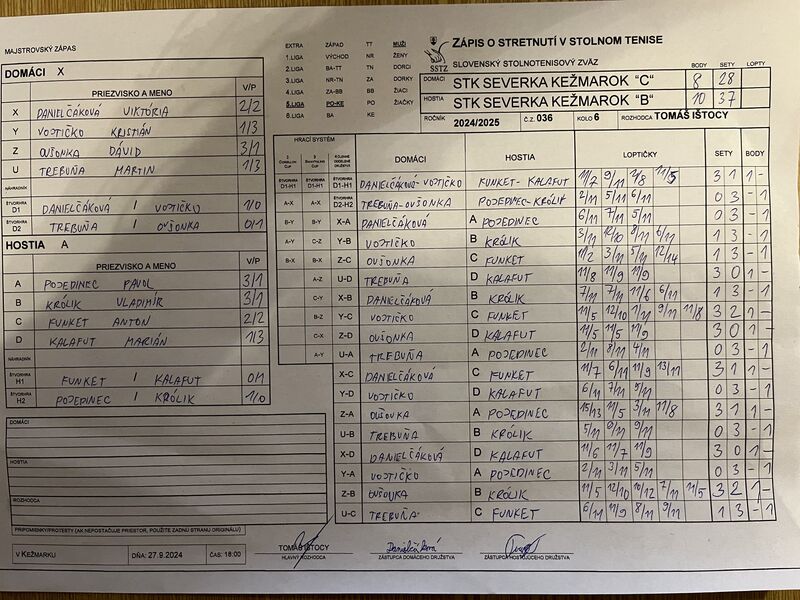 MAJSTROVSKÝ ZÁPAS
EXTRA ZÁPAD TT MUŽI
1.LIGA VÝCHOD NR ŽENY
2.LIGA BA-TT TN DORCI
3.LIGA NR-TN ZA DORKY
4.LIGA ZA-BB BB ŽIACI
5.LIGA PO-KE PO ŽIAČKY
6.LIGA BA KE
SSTZ
ZÁPIS O STRETNUTÍ V STOLNOM TENISE
SLOVENSKÝ STOLNOTENISOVÝ ZVÄZ
BODY SETY LOPTY
DOMÁCI STK SEVERKA KEŽMAROK "C" 8 28
HOSTIA STK SEVERKA KEŽMAROK "B" 10 37
ROČNÍK 2024/2025 Č.Z. 036 KOLO 6 ROZHODCA TOMÁŠ IŠTOCY
DOMÁCI X
PRIEZVISKO A MENO V/P
X DANIELČÁKOVÁ VIKTÓRIA 2/2
Y VOJTIČKO KRISTIÁN 1/3
Z OUŠONKA DÁVID 3/1
U TREBUŇA MARTIN 1/3
NÁHRADNÍK
ŠTVORHRA D1 DANIELČÁKOVÁ / VOJTIČKO 1/0
ŠTVORHRA D2 TREBUŇA / OUŠONKA 0/1
HOSTIA A
PRIEZVISKO A MENO V/P
A POJEDINEC PAVOL 3/1
B KRÓLIK VLADIMÍR 3/1
C FUNKET ANTON 2/2
D KALAFUT MARIÁN 1/3
NÁHRADNÍK
ŠTVORHRA H1 FUNKET / KALAFUT 0/1
ŠTVORHRA H2 POJEDINEC / KRÓLIK 1/0
DOMÁCI
HOSTIA
ROZHODCA
PRIPOMIENKY/PROTESTY (AK NEPOSTAČUJE PRIESTOR, POUŽITE ZADNÚ STRANU ORIGINÁLU)
V KEŽMARKU DŇA: 27.9.2024 ČAS: 18:00
HRACÍ SYSTÉM
DOMÁCI HOSTIA LOPTIČKY SETY BODY
ŠTVORHRA D1-H1 ŠTVORHRA D1-H1 ŠTVORHRA D1-H1 DANIELČÁKOVÁ-VOJTIČKO FUNKET-KALAFUT 11/7 9/11 11/8 11/5 3 1 1 -
A-X A-X ŠTVORHRA D2-H2 TREBUŇA-OUŠONKA POJEDINEC-KRÓLIK 2/11 5/11 6/11 0 3 - 1
B-Y B-Y X-A DANIELČÁKOVÁ A POJEDINEC 6/11 7/11 5/11 0 3 - 1
A-Y C-Z Y-B VOJTIČKO B KRÓLIK 3/11 12/10 8/11 6/11 1 3 - 1
B-X B-X Z-C OUŠONKA C FUNKET 11/2 3/11 5/11 12/14 1 3 - 1
A-Z U-D TREBUŇA D KALAFUT 11/8 11/9 11/9 3 0 1 -
C-Y X-B DANIELČÁKOVÁ B KRÓLIK 7/11 7/11 11/6 6/11 1 3 - 1
B-Z Y-C VOJTIČKO C FUNKET 11/5 12/10 1/11 9/11 11/8 3 2 1 -
C-X Z-D OUŠONKA D KALAFUT 11/5 11/5 11/9 3 0 1 -
A-Y U-A TREBUŇA A POJEDINEC 2/11 8/11 4/11 0 3 - 1
X-C DANIELČÁKOVÁ C FUNKET 11/7 6/11 11/9 13/11 3 1 1 -
Y-D VOJTIČKO D KALAFUT 6/11 7/11 5/11 0 3 - 1
Z-A OUŠONKA A POJEDINEC 15/13 11/5 3/11 11/8 3 1 1 -
U-B TREBUŇA B KRÓLIK 5/11 9/11 9/11 0 3 - 1
X-D DANIELČÁKOVÁ D KALAFUT 11/6 11/7 11/9 3 0 1 -
Y-A VOJTIČKO A POJEDINEC 2/11 3/11 5/11 0 3 - 1
Z-B OUŠONKA B KRÓLIK 11/5 12/10 10/12 7/11 11/5 3 2 1 -
U-C TREBUŇA C FUNKET 6/11 11/9 8/11 9/11 1 3 - 1
TOMÁŠ IŠTOCY
HLAVNÝ ROZHODCA
ZÁSTUPCA DOMÁCEHO DRUŽSTVA
ZÁSTUPCA HOSŤUJÚCEHO DRUŽSTVA